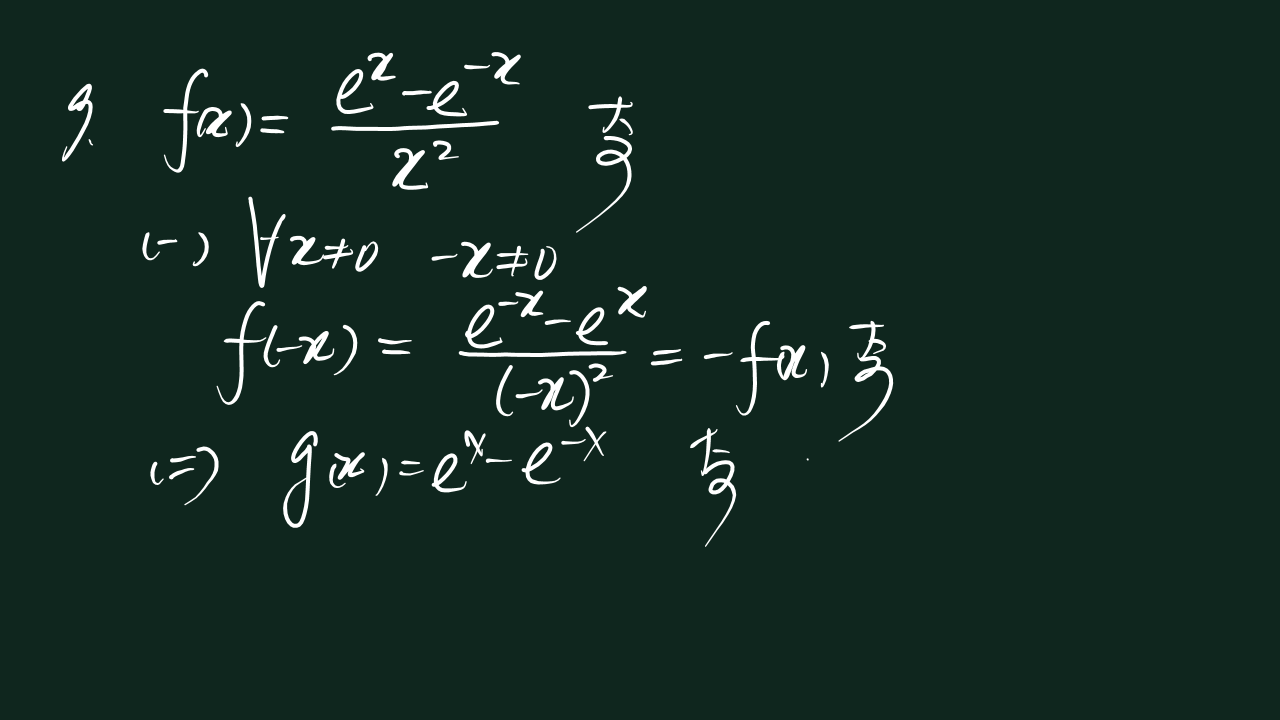 9. f(x) = \frac{e^x - e^{-x}}{x^2} 奇
(一) ∀x≠0 -x≠0
f(-x) = \frac{e^{-x} - e^x}{(-x)^2} = -f(x) 奇
(二) g(x) = e^x - e^{-x} 奇